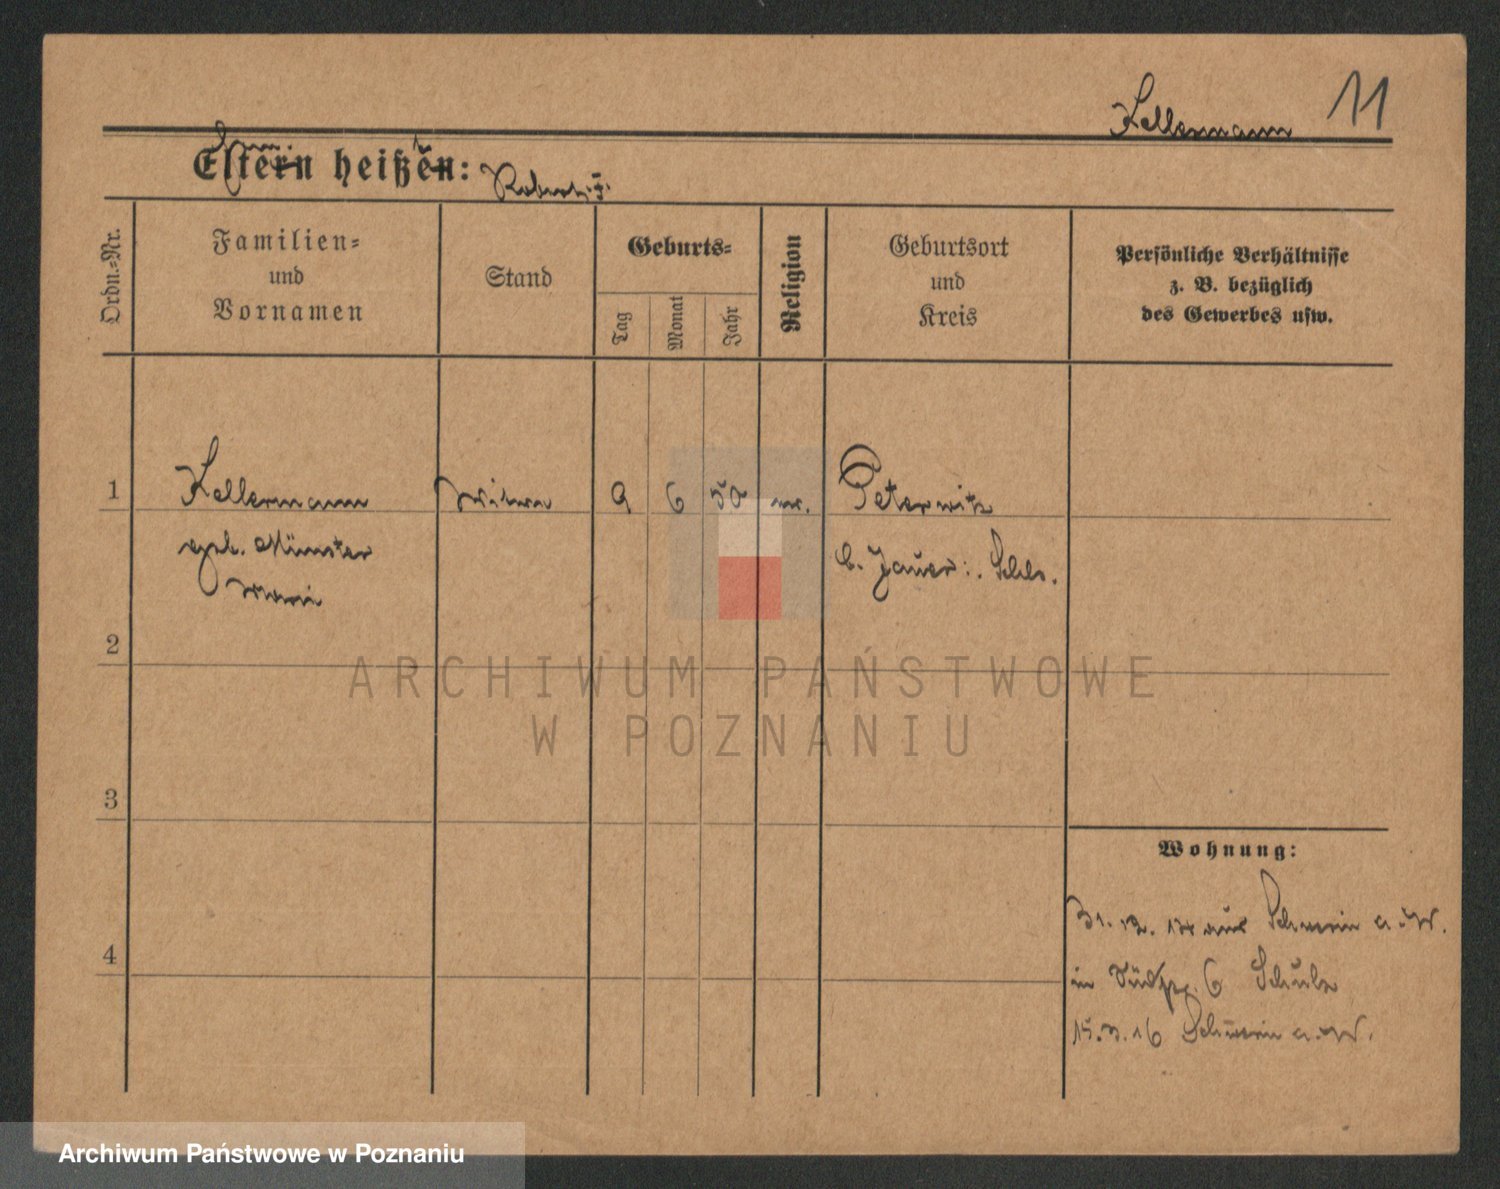 Kellermann 11
Eltern heißen: Robert †.
Ordn.-Nr.
Familien-
und
Vornamen
Stand
Geburts-
Tag
Monat
Jahr
Religion
Geburtsort
und
Kreis
Persönliche Verhältnisse
z. B. bezüglich
des Gewerbes usw.
1 Kellermann Witwe 9 6 50 ev. Peterwitz
geb. Münster b. Jauer i. Schles.
2
3
4
Wohnung:
31.12. aus Schwerin a. W.
in 6 Schule
15.3.16 Schwerin a. W.
ARCHIWUM PAŃSTWOWE
W POZNANIU
Archiwum Państwowe w Poznaniu